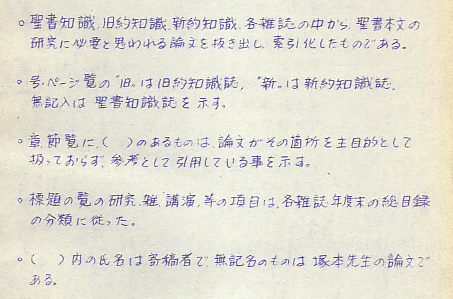 。聖書知識、旧約知識、新約知識、各雑誌の中から、聖書本文の
研究に必要と思われる論文を抜き出し、索引化したものである。
。号・ページ覧の“旧”は旧約知識誌、“新”は新約知識誌、
無記入は聖書知識誌を示す。
。章、節覧に、( )のあるものは、論文がその箇所を主目的として
扱っておらず、参考として引用している事を示す。
。標題の覧の研究、雑、講演、等の項目は、各雑誌年度末の総目録
の分類に従った。
。( )内の氏名は寄稿者で、無記名のものは塚本先生の論文で
ある。